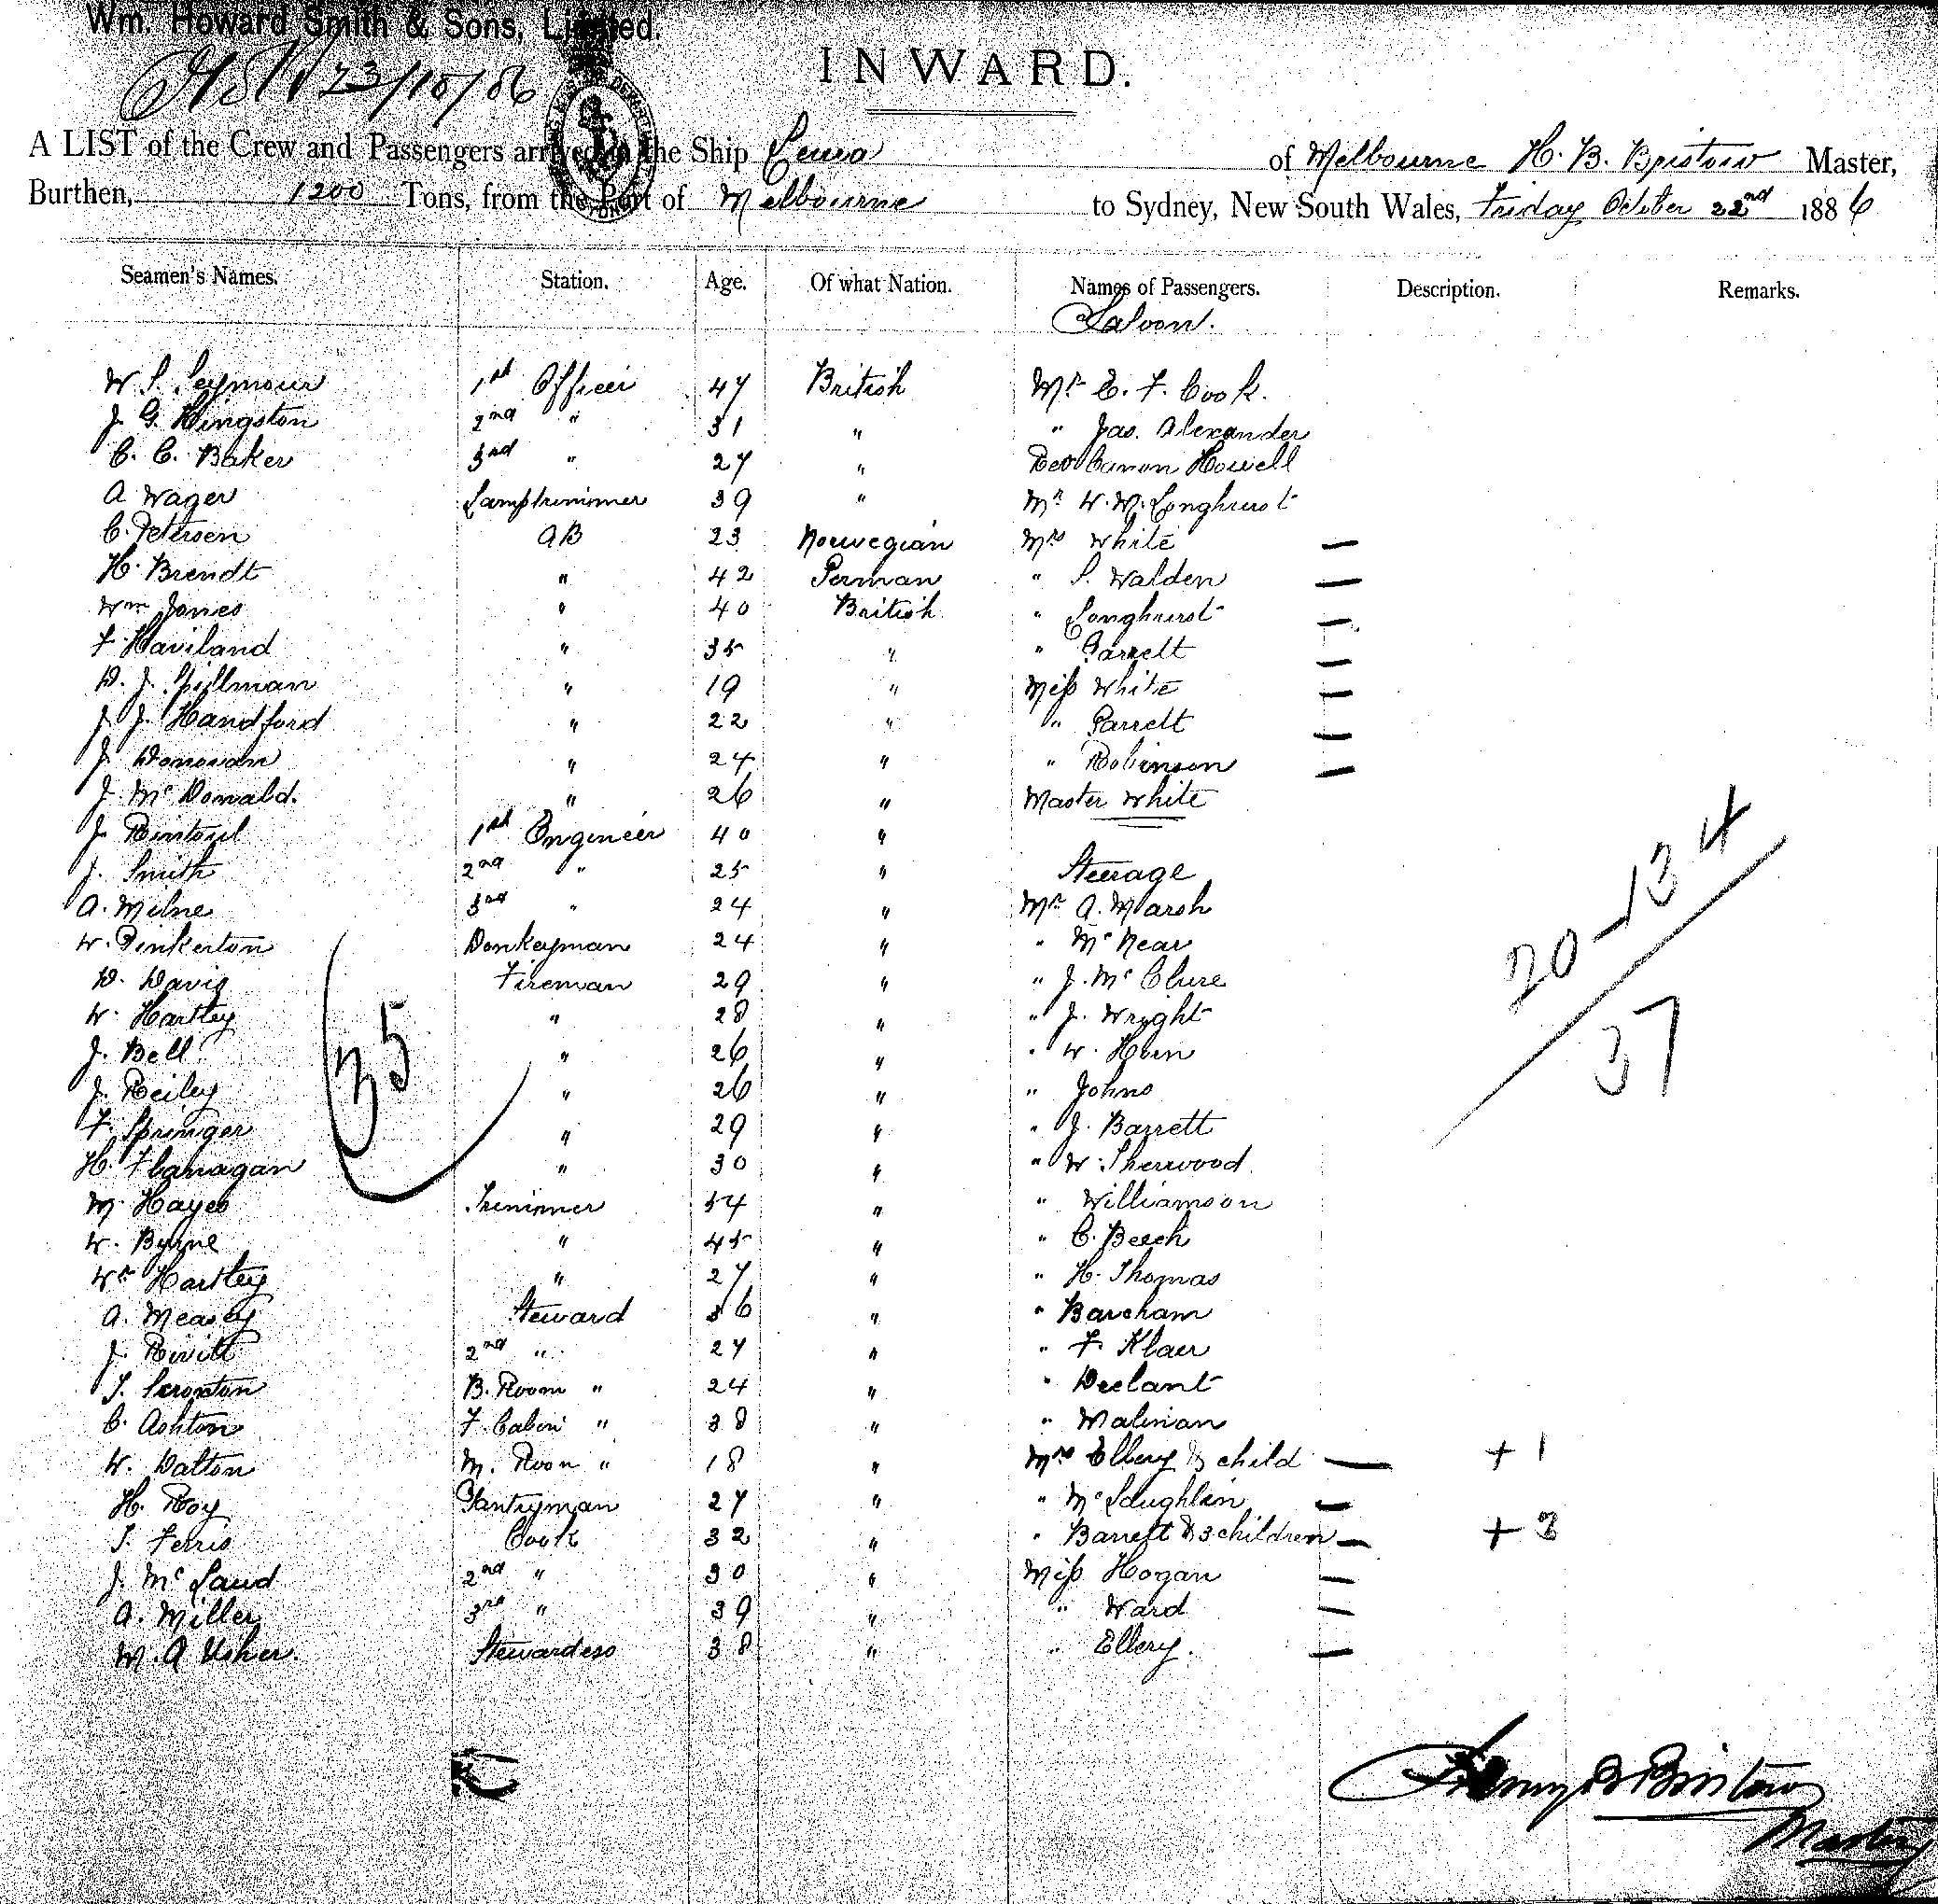 Wm. Howard Smith & Sons, Limited.
INWARD.
23/10/86
A LIST of the Crew and Passengers arrived in the Ship of Melbourne H. B. Bristow Master,
Burthen, 1200 Tons, from the Port of Melbourne to Sydney, New South Wales, Friday October 22nd 1886
Seamen's Names. Station. Age. Of what Nation. Names of Passengers. Description. Remarks.
Saloon.
W S. Seymour 1st Officer 47 British Mr E. F. Cook.
J. G. Kingston 2nd " 31 " " Jas. Alexander
C. C. Baker 3rd " 27 " Rev Canon Howell
A Wager Lamptrimmer 39 " Mr W. W. Longhurst
C. Petersen AB 23 Norwegian Mrs White —
H. Brendt " 42 German " S. Walden —
Wm Jones " 40 British " Longhurst —
F. Haviland " 35 " " Garrett —
D. J. Spillman " 19 " Miss White —
J. J. Handford " 22 " " Garrett —
J. Donovan " 24 " " Robinson —
J. McDonald. " 26 " Master White
J. Rintoul 1st Engineer 40 "
J. Smith 2nd " 25 " Steerage
A. Milne 3rd " 24 " Mr A. Marsh
W. Pinkerton Donkeyman 24 " " McNear
D. Davis Fireman 29 " " J. McClure
W. Hartley " 28 " " J. Wright
J. Bell " 26 " " W. Horn
J. Reiley " 26 " " Johns
F. Springer " 29 " " J. Barrett
H. Flanagan " 30 " " W. Sherwood.
M. Hayes Trimmer 34 " " Williamson
W. Byrne " 45 " " C. Beech
Wm Hartley " 27 " " H. Thomas
A. Steward 36 " " Barcham
J. 2nd " 27 " " F. Klaer
S. Scroxton B. Room " 24 " "
C. Ashton F. Cabin " 38 " "
W. Dalton M. Room " 18 " Mrs Ellery & child — + 1
H. Roy Pantryman 27 " " McLaughlin —
S. Ferris Cook 32 " " Barrett & 3 children — + 3
J. 2nd " 30 " Miss Hogan —
A. Miller 3rd " 39 " " Ward —
M. A Usher. Stewardess 38 " " Ellery. —
35
20-13 4
37
Henry B Bristow
Master